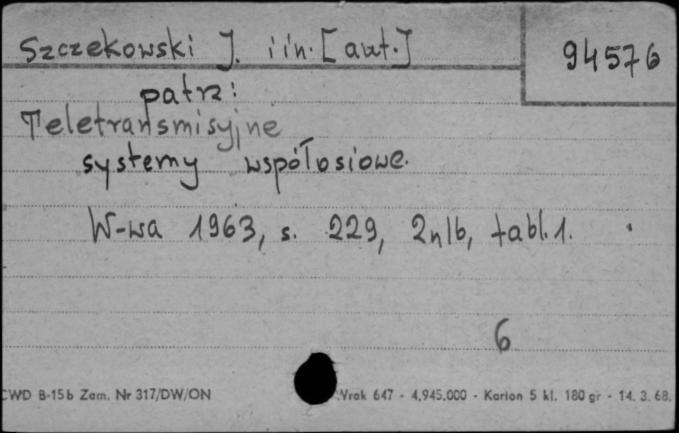 Szczekowski J. i in. [aut.]
94576
patrz:
Teletransmisyjne
systemy współosiowe.
W-wa 1963, s. 229, 2nlb, tabl.1.
6
CWD B-15b Zam. Nr 317/DW/ON
Wrak 647 - 4.945.000 - Karton 5 kl. 180 gr - 14. 3. 68.